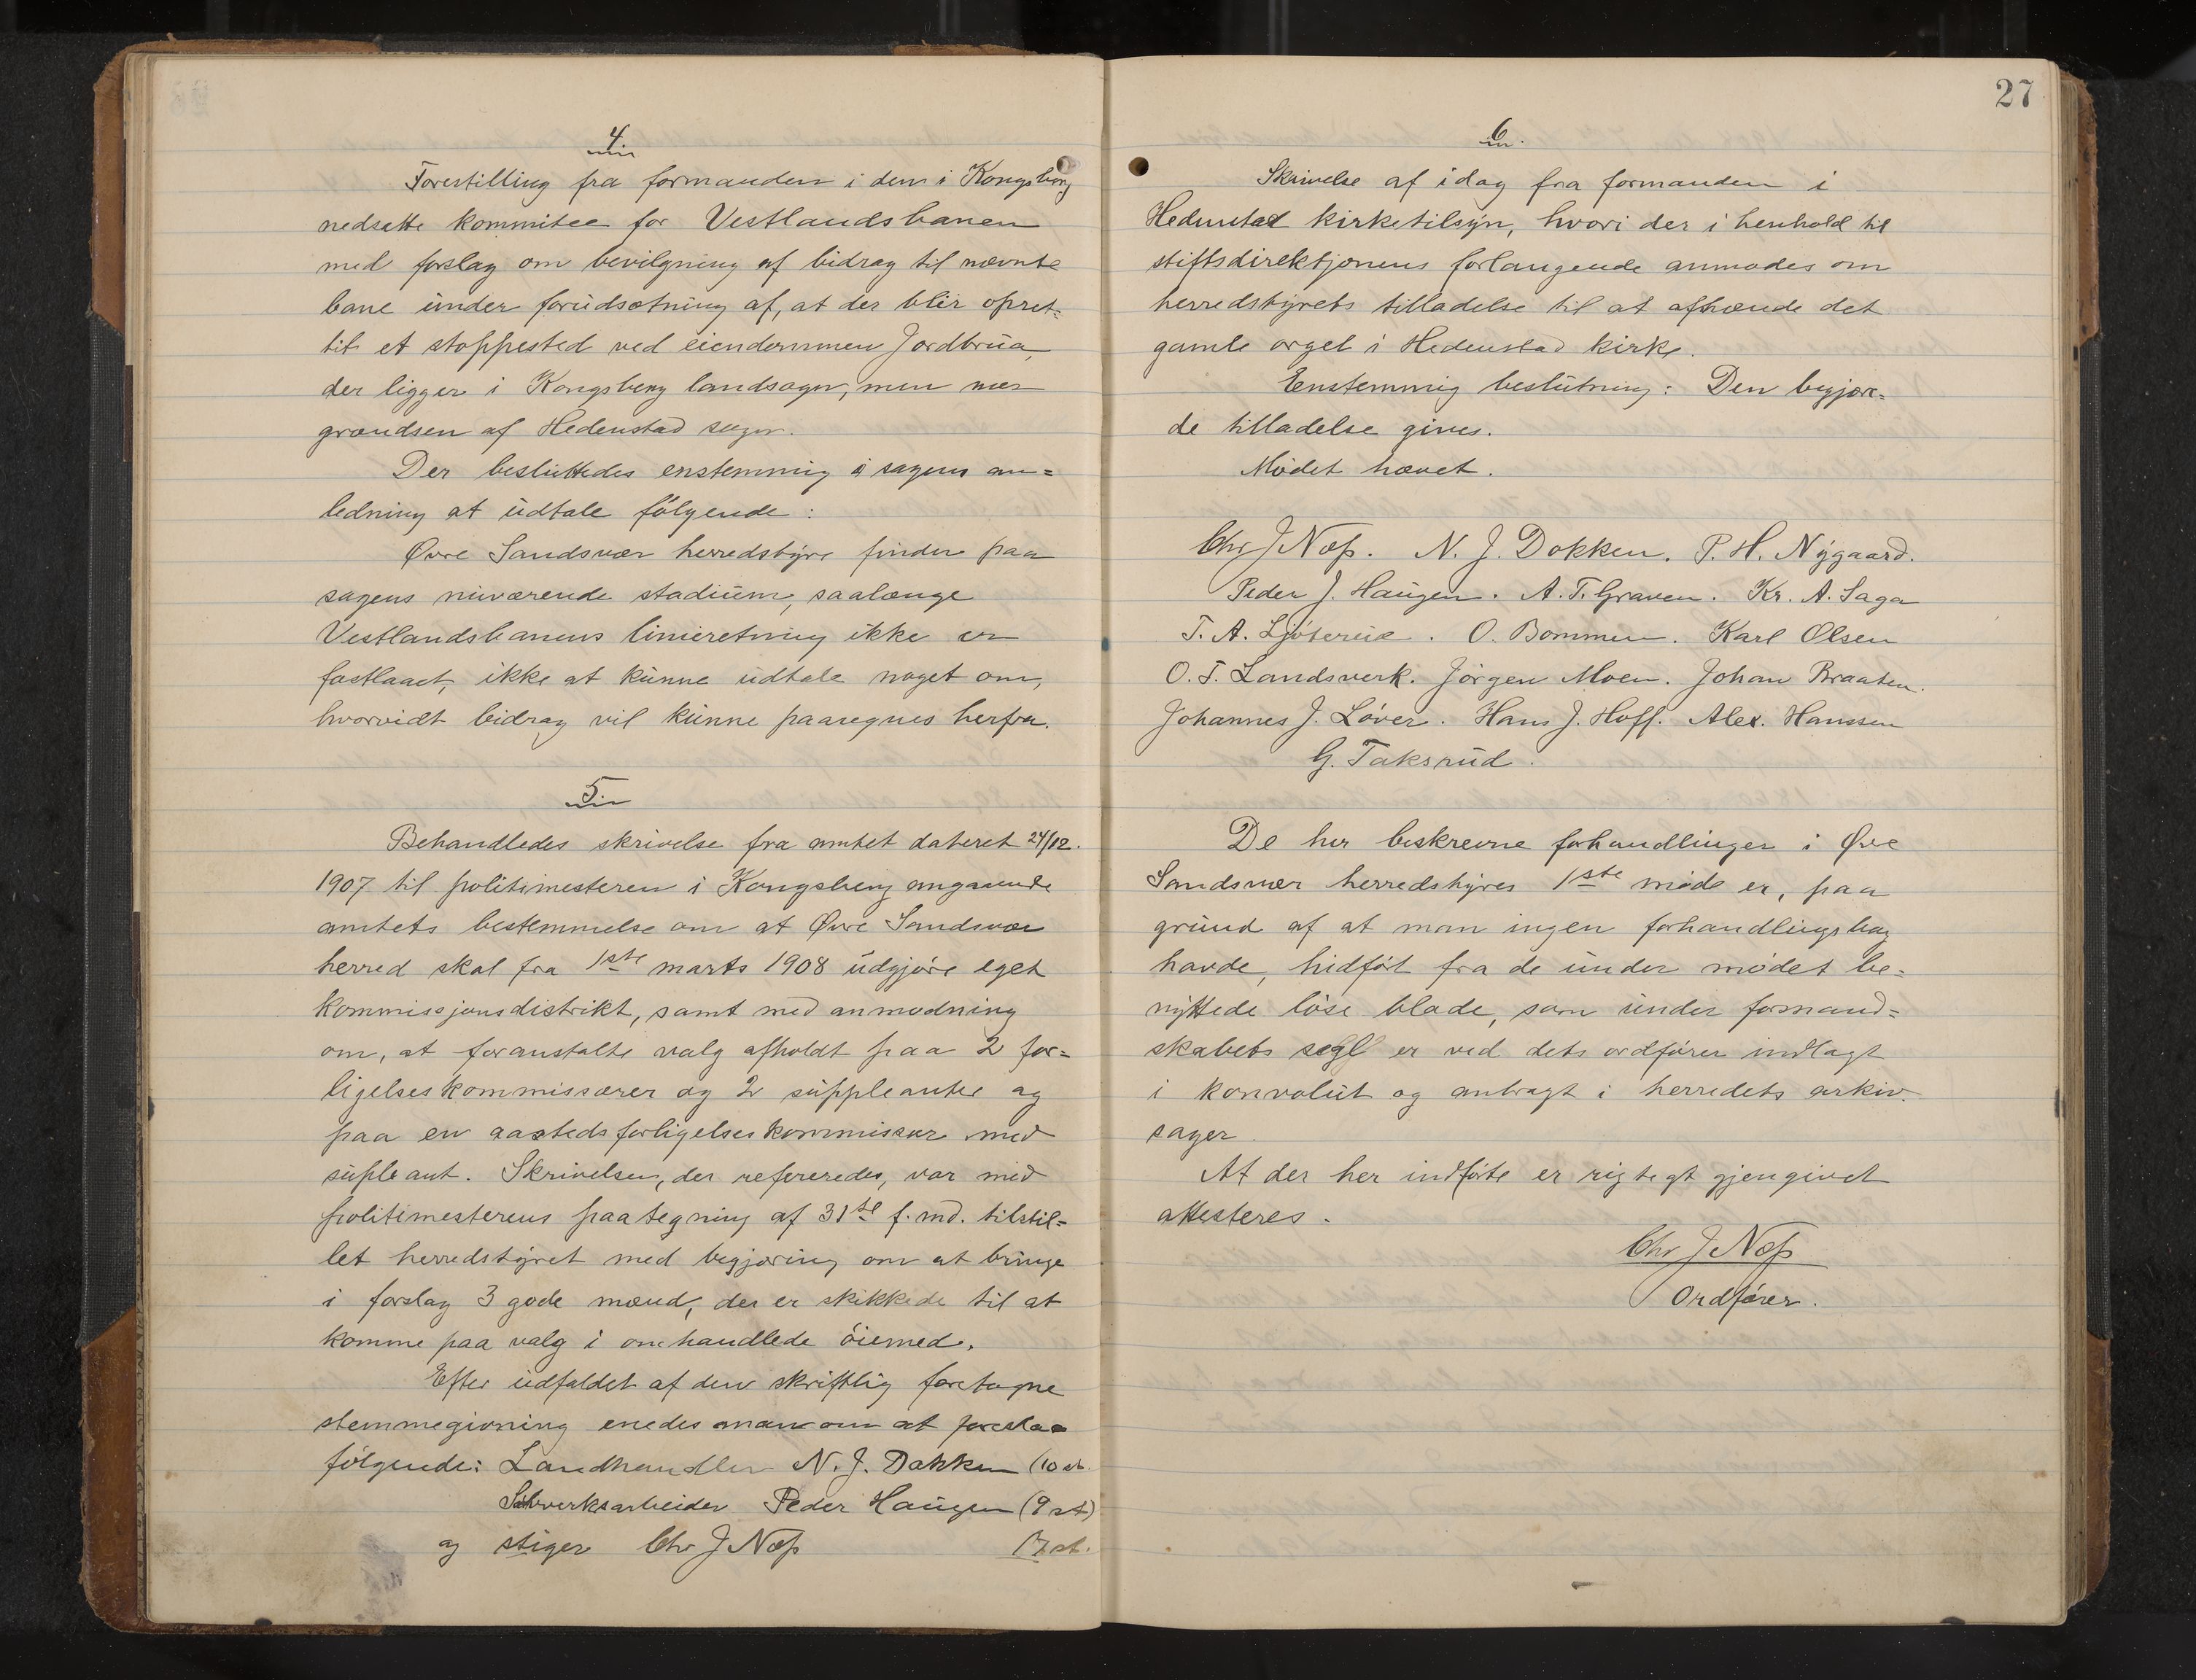 4
Forestilling fra formanden i den i Kongsberg
nedsatte kommitee for Vestlandsbanen
med forslag om bevilgning af bidrag til nævnte
bane under forudsætning af, at der blir opret-
tit et stoppested ved eiendommen Jordbrua,
der ligger i Kongsberg landsogn, men nær
grændsen af Hedenstad sogn.
Der besluttedes enstemmig i sagens an=
ledning at udtale følgende:
Øvre Sandsvær herredstyre finder paa
sagens nuværende stadium, saalænge
Vestlandsbanens linieretning ikke er
fastlaaet, ikke at kunne udtale noget om,
hvorvidt bidrag vil kunne paaregnes herfra.
5
Behandledes skrivelse fra amtet dateret 24/12.
1907 til politimesteren i Kongsberg angaaende
amtets bestemmelse om at Øvre Sandsvær
herred skal fra 1ste marts 1908 udgjøre eget
kommissjonsdistrikt, samt med anmodning
om, at foranstalte valg afholdt paa 2 for=
ligelseskommissærer og 2 suppleanter og
paa en aastedsforligelseskommissær med
supleant. Skrivelsen, der refereredes, var med
politimesterens paategning af 31te f. md. tilstil=
let herredstyret med begjæring om at bringe
i forslag 3 gode mænd, der er skikkede til at
komme paa valg i omhandlede öiemed.
Efter udfaldet af den skriftlig foretagne
stemmegivning enedes man om at foreslaa
følgende: Landhandler N. J. Dokken (10 st.
Sølvverksarbeider Peder Haugen (9 st)
og stiger Chr J Næss 17 st.
27
6
Skrivelse af idag fra formanden i
Hedenstad kirketilsyn, hvori der i henhold til
stiftsdirektjonens forlangende anmodes om
herredstyrets tilladelse til at afhænde det
gamle orgel i Hedenstad kirke.
Enstemmig beslutning: Den begjær=
de tilladelse gives.
Mødet hævet.
Chr J Næss. N. J. Dokken. P. H. Nygaard.
Peder J. Haugen. A. T. Graven. Kr. A. Saga
T. A. . O. Bommen. Karl Olsen
O. T. Landsverk. Jørgen Moen. Johan Braaten.
Johannes J. Løver. Hans J. Hoff. Alex. Hanssen
G. Taksrud.
De her beskrevne forhandlinger i Øvre
Sandsvær herredstyres 1ste møde er, paa
grund af at man ingen forhandlingsbog
havde, hidført fra de under mødet be=
nyttede løse blade, som under formand=
skabets segl er ved dets ordfører indlagt
i konvolut og anbragt i herredets arkiv.
sager.
At der her indførte er rigtigt gjengivet
attesteres.
Chr J Næss
Ordfører.